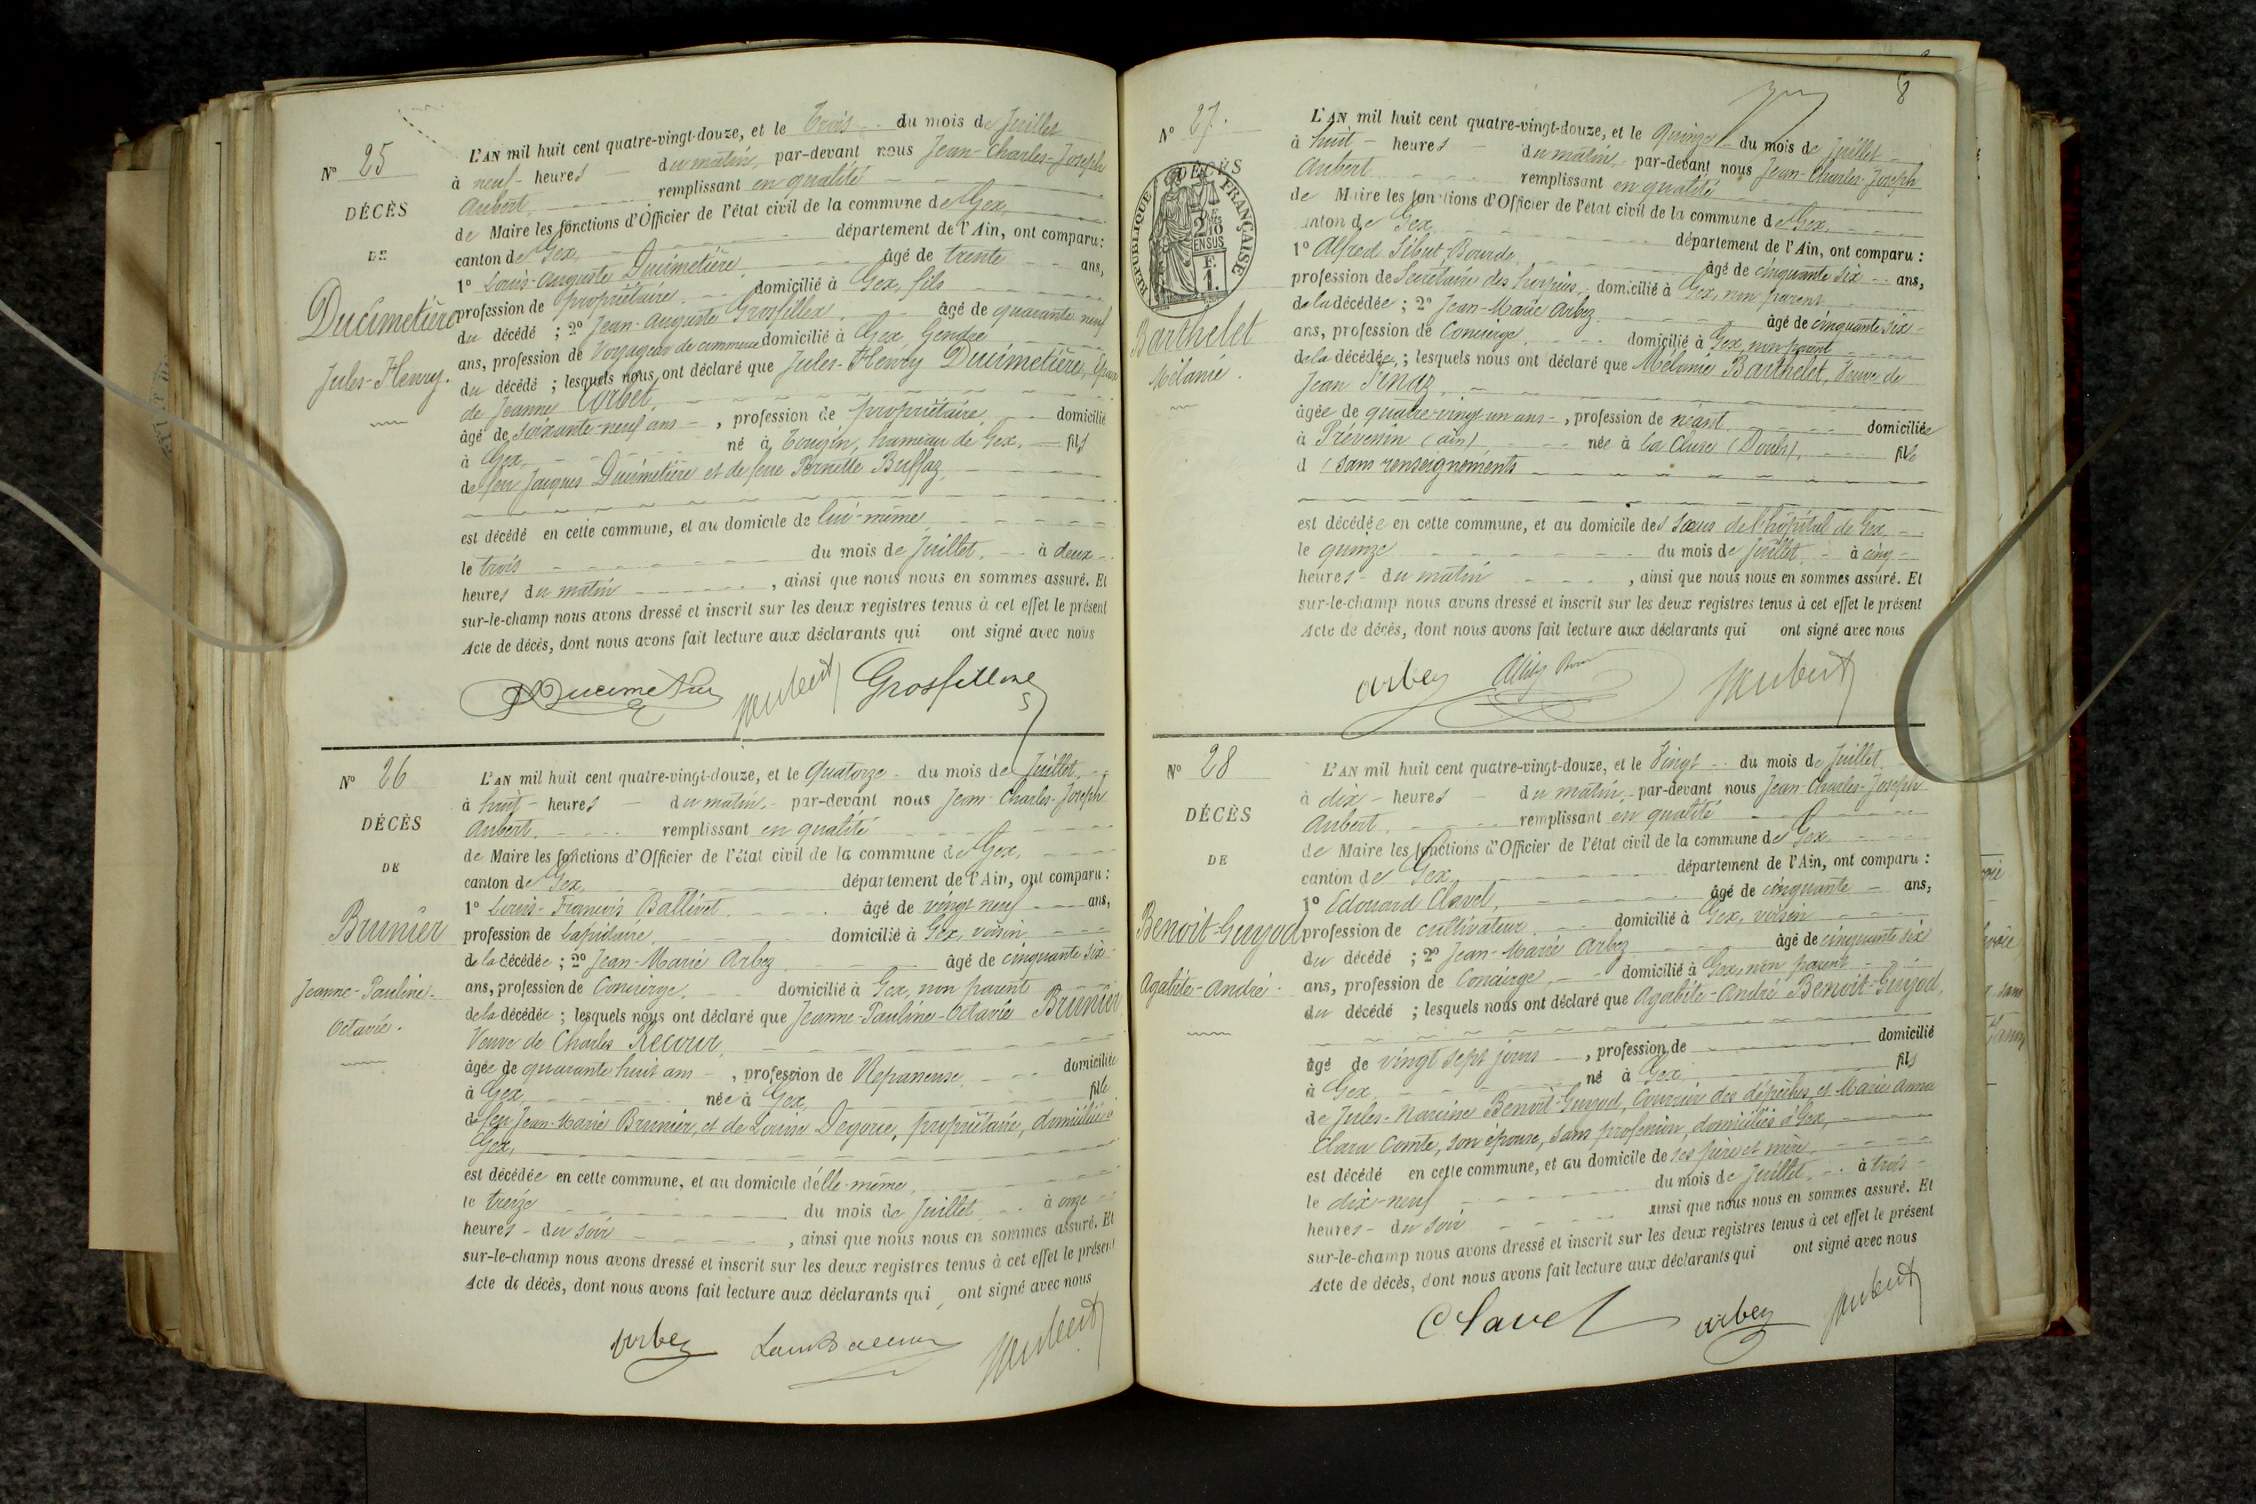 N° 25
DÉCÈS
DE
Ducimetière
Jules-Henry.
L'AN mil huit cent quatre-vingt-douze, et le Trois du mois de Juillet
à neuf heures du matin, par-devant nous Jean-Charles-Joseph
Aubert, remplissant en qualité
de Maire les fonctions d'Officier de l'état civil de la commune de Gex,
canton de Gex, département de l'Ain, ont comparu :
1° Louis-Auguste Ducimetière, âgé de trente ans,
profession de propriétaire, domicilié à Gex, fils
du décédé ; 2° Jean-Auguste Grosfillex, âgé de quarante neuf
ans, profession de Voyageur de commerce domicilié à Gex, Gendre
du décédé ; lesquels nous ont déclaré que Jules-Henry Ducimetière, Epoux
de Jeanne Corbet,
âgé de soixante-neuf ans, profession de propriétaire, domicilié
à Gex, né à Tougin, hameau de Gex, fils
de feu Jacques Ducimetière et de feue Pernette Buffaz,
est décédé en cette commune, et au domicile de lui-même,
le trois du mois de Juillet, à deux
heures du matin, ainsi que nous nous en sommes assuré. Et
sur-le-champ nous avons dressé et inscrit sur les deux registres tenus à cet effet le présent
Acte de décès, dont nous avons fait lecture aux déclarants qui ont signé avec nous
Ducimetière Aubert Grosfillex
N° 26
DÉCÈS
DE
Brunier
Jeanne-Pauline-
Octavie.
L'AN mil huit cent quatre-vingt-douze, et le Quatorze du mois de Juillet,
à huit heures du matin, par-devant nous Jean-Charles-Joseph
Aubert, remplissant en qualité
de Maire les fonctions d'Officier de l'état civil de la commune de Gex,
canton de Gex, département de l'Ain, ont comparu :
1° Louis-François Ballivet, âgé de vingt neuf ans,
profession de Lapidaire, domicilié à Gex, voisin
de la décédée ; 2° Jean-Marie Arbez âgé de cinquante six
ans, profession de Concierge, domicilié à Gex, non parent
de la décédée ; lesquels nous ont déclaré que Jeanne-Pauline-Octavie Brunier,
Veuve de Charles Recour,
âgée de quarante huit ans, profession de Repasseuse, domiciliée
à Gex, née à Gex, fille
de feu Jean-Marie Brunier, et de Louise Degorce, propriétaire, domiciliée à
Gex,
est décédée en cette commune, et au domicile d'elle-même,
le treize du mois de Juillet, à onze
heures du soir, ainsi que nous nous en sommes assuré. Et
sur-le-champ nous avons dressé et inscrit sur les deux registres tenus à cet effet le présent
Acte de décès, dont nous avons fait lecture aux déclarants qui ont signé avec nous
Arbez Louis Ballivet Aubert
8
N° 27.
DÉCÈS
RÉPUBLIQUE FRANÇAISE
2/10 EN SUS
F. 1.
Barthelet
Mélanie.
L'AN mil huit cent quatre-vingt-douze, et le Quinze du mois de Juillet
à huit heures du matin, par-devant nous Jean-Charles-Joseph
Aubert remplissant en qualité
de Maire les fonctions d'Officier de l'état civil de la commune de Gex,
canton de Gex, département de l'Ain, ont comparu :
1° Alfred Sibut-Bourde, âgé de cinquante six ans,
profession de Secrétaire des hospices, domicilié à Gex, non parent
de la décédée ; 2° Jean-Marie Arbez âgé de cinquante six
ans, profession de Concierge, domicilié à Gex, non parent
de la décédée ; lesquels nous ont déclaré que Mélanie Barthelet, Veuve de
Jean Pinaz,
âgée de quatre-vingt un ans, profession de néant domiciliée
à Prévessin (Ain) née à La Cluse (Doubs), fille
d (sans renseignements
est décédée en cette commune, et au domicile des sœurs de l'hôpital de Gex,
le quinze du mois de Juillet, à cinq
heures du matin, ainsi que nous nous en sommes assuré. Et
sur-le-champ nous avons dressé et inscrit sur les deux registres tenus à cet effet le présent
Acte de décès, dont nous avons fait lecture aux déclarants qui ont signé avec nous
Arbez Aubert
N° 28
DÉCÈS
DE
Benoit-Guyod
Agabite-André.
L'AN mil huit cent quatre-vingt-douze, et le Vingt du mois de Juillet,
à dix heures du matin, par-devant nous Jean-Charles-Joseph
Aubert, remplissant en qualité
de Maire les fonctions d'Officier de l'état civil de la commune de Gex,
canton de Gex, département de l'Ain, ont comparu :
1° Edouard Clavel, âgé de cinquante ans,
profession de cultivateur domicilié à Gex, voisin
du décédé ; 2° Jean-Marie Arbez âgé de cinquante six
ans, profession de Concierge, domicilié à Gex, non parent
du décédé ; lesquels nous ont déclaré que Agabite-André Benoit-Guyod,
âgé de vingt sept jours, profession de domicilié
à Gex né à Gex fils
de Jules-Narcisse Benoit-Guyod, Courrier des dépêches, et Marie Anna
Clara Comte, son épouse, sans profession, domiciliés à Gex,
est décédé en cette commune, et au domicile de ses père et mère
le dix-neuf du mois de Juillet, à trois
heures du soir ainsi que nous nous en sommes assuré. Et
sur-le-champ nous avons dressé et inscrit sur les deux registres tenus à cet effet le présent
Acte de décès, dont nous avons fait lecture aux déclarants qui ont signé avec nous
Clavel Arbez Aubert